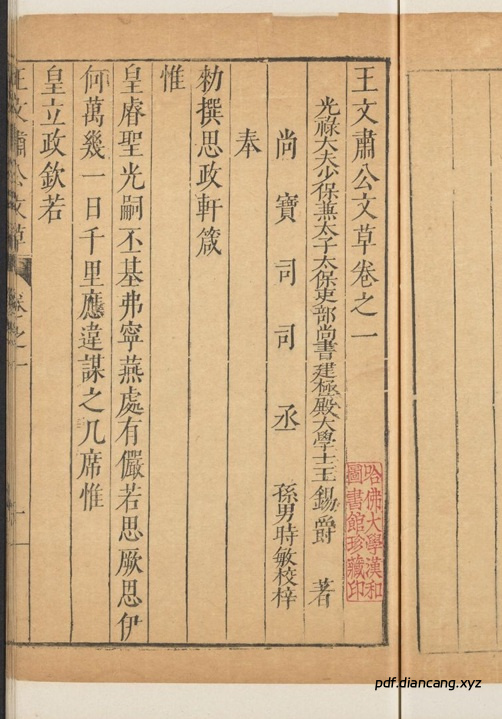 王文肅公文草卷之一
光祿大夫少保兼太子太保吏部尚書建極殿大學士王錫爵 著
尚寶司司丞 孫男時敏校梓
奉
勑撰思政軒箴
惟
皇睿聖光嗣丕基弗寧燕處有儼若思厥思伊
何萬幾一日千里應違謀之几席惟
皇立政欽若
王文肅公文草 卷之一 一
哈佛大學漢和
圖書館珍藏印
pdf.diancang.xyz